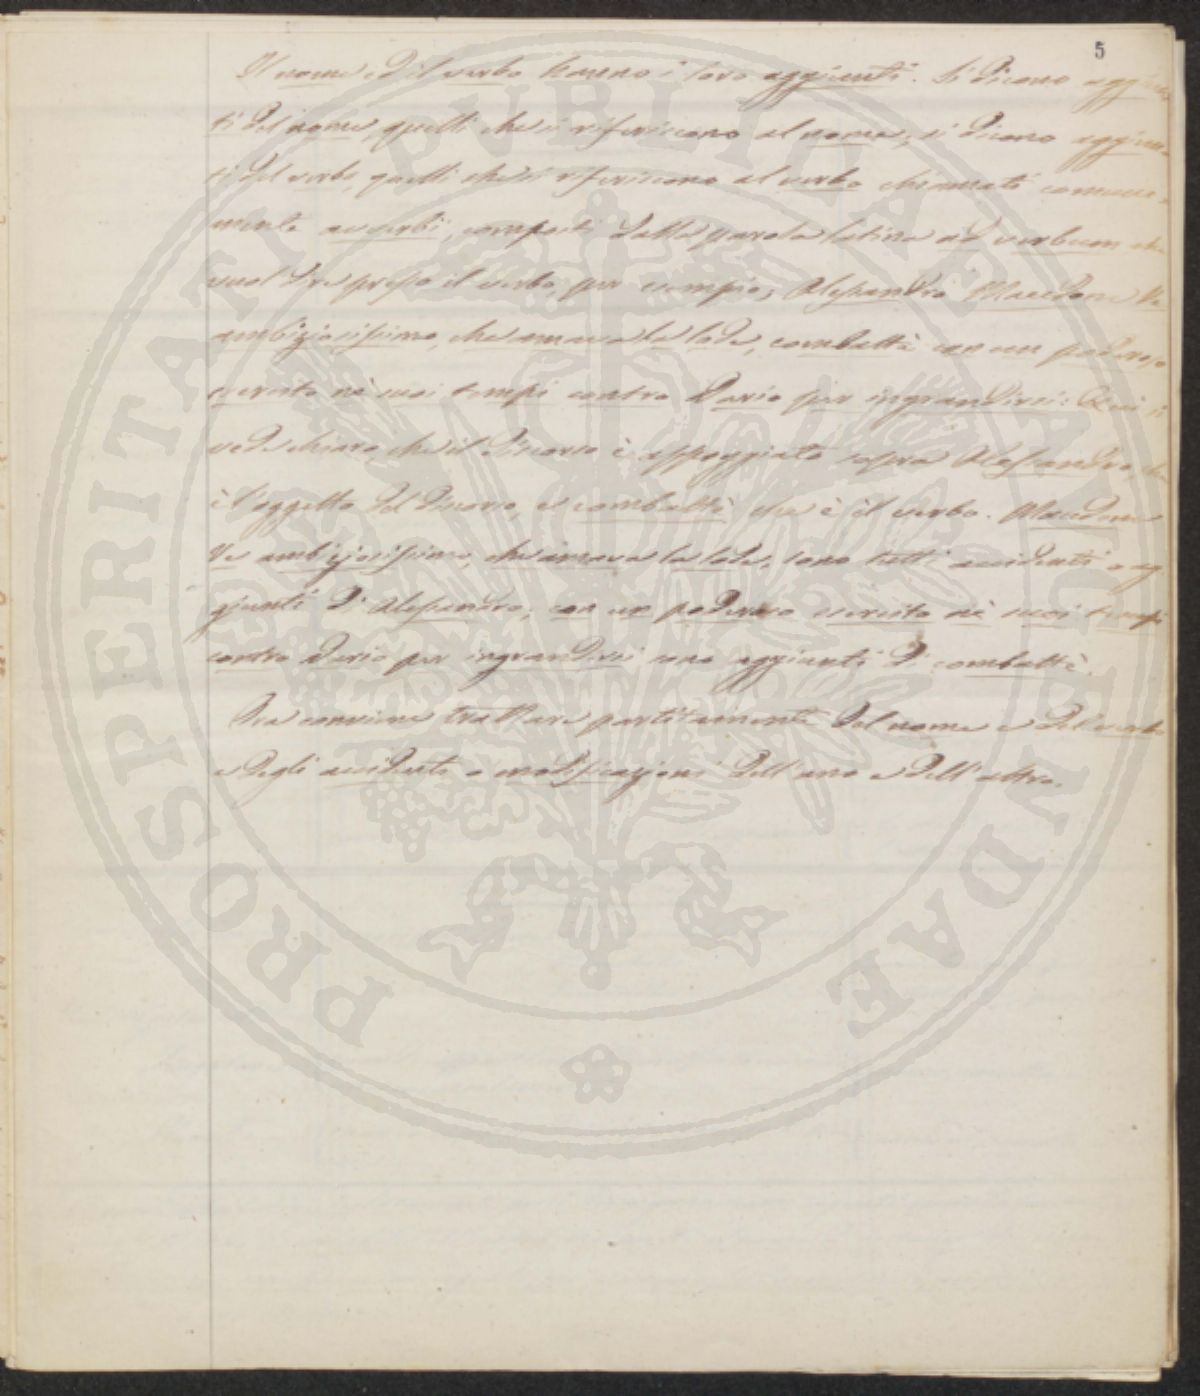 5
Il nome ed il verbo hanno i loro aggiunti. Si dicono aggiun
ti del nome, quelli che si riferiscono al nome, si dicono aggiun
ti del verbo, quelli che si riferiscono al verbo chiamati comune-
mente avverbi, composti dalla parola latina ad verbum che
vuol dire presso il verbo, per esempio; Alessandro Macedone Re
ambiziosissimo, che amava la lode, combattè con un poderoso
esercito nè suoi tempi contro Dario per ingrandirsi: Qui si
vede chiaro, che il discorso è appoggiato sopra Alessandro, che
è l'oggetto del discorso, e combattè che è il verbo. Macedone
Re ambiziosissimo, che amava la lode, sono tutti accidenti o ag
giunti di Alessandro, con un poderoso esercito nè suoi tempi
contro Dario per ingrandirsi sono aggiunti di combattè.
Ora conviene trattare partitamente del nome e del verbo
e degli accidenti o modificazioni dell'uno e dell'altro.
PROSPERITATI PVBLICAE AVGENDAE